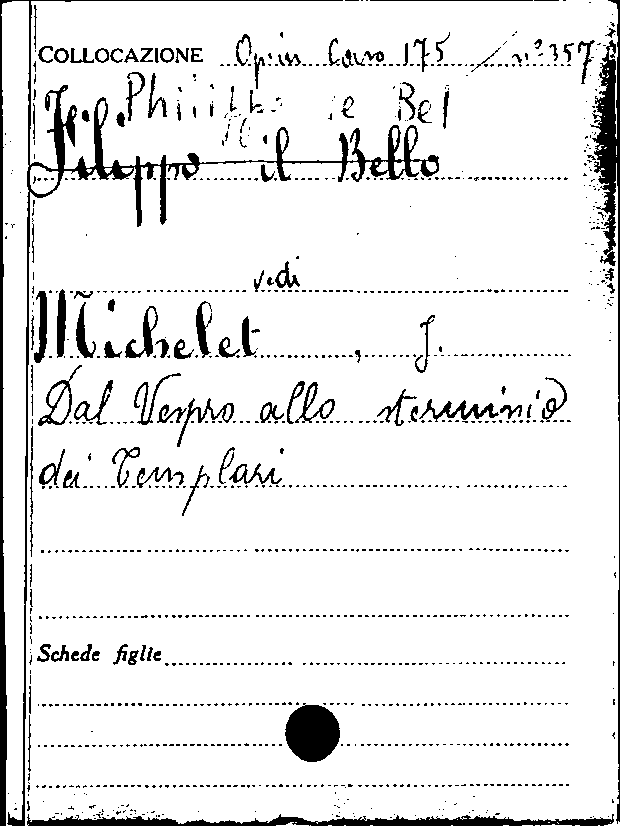 COLLOCAZIONE Opin Cars 175 / n° 357
Philippe le Bel
Filippo il Bello
vedi
Michelet, J.
Dal Vespro allo sterminio
dei Templari
Schede figlie